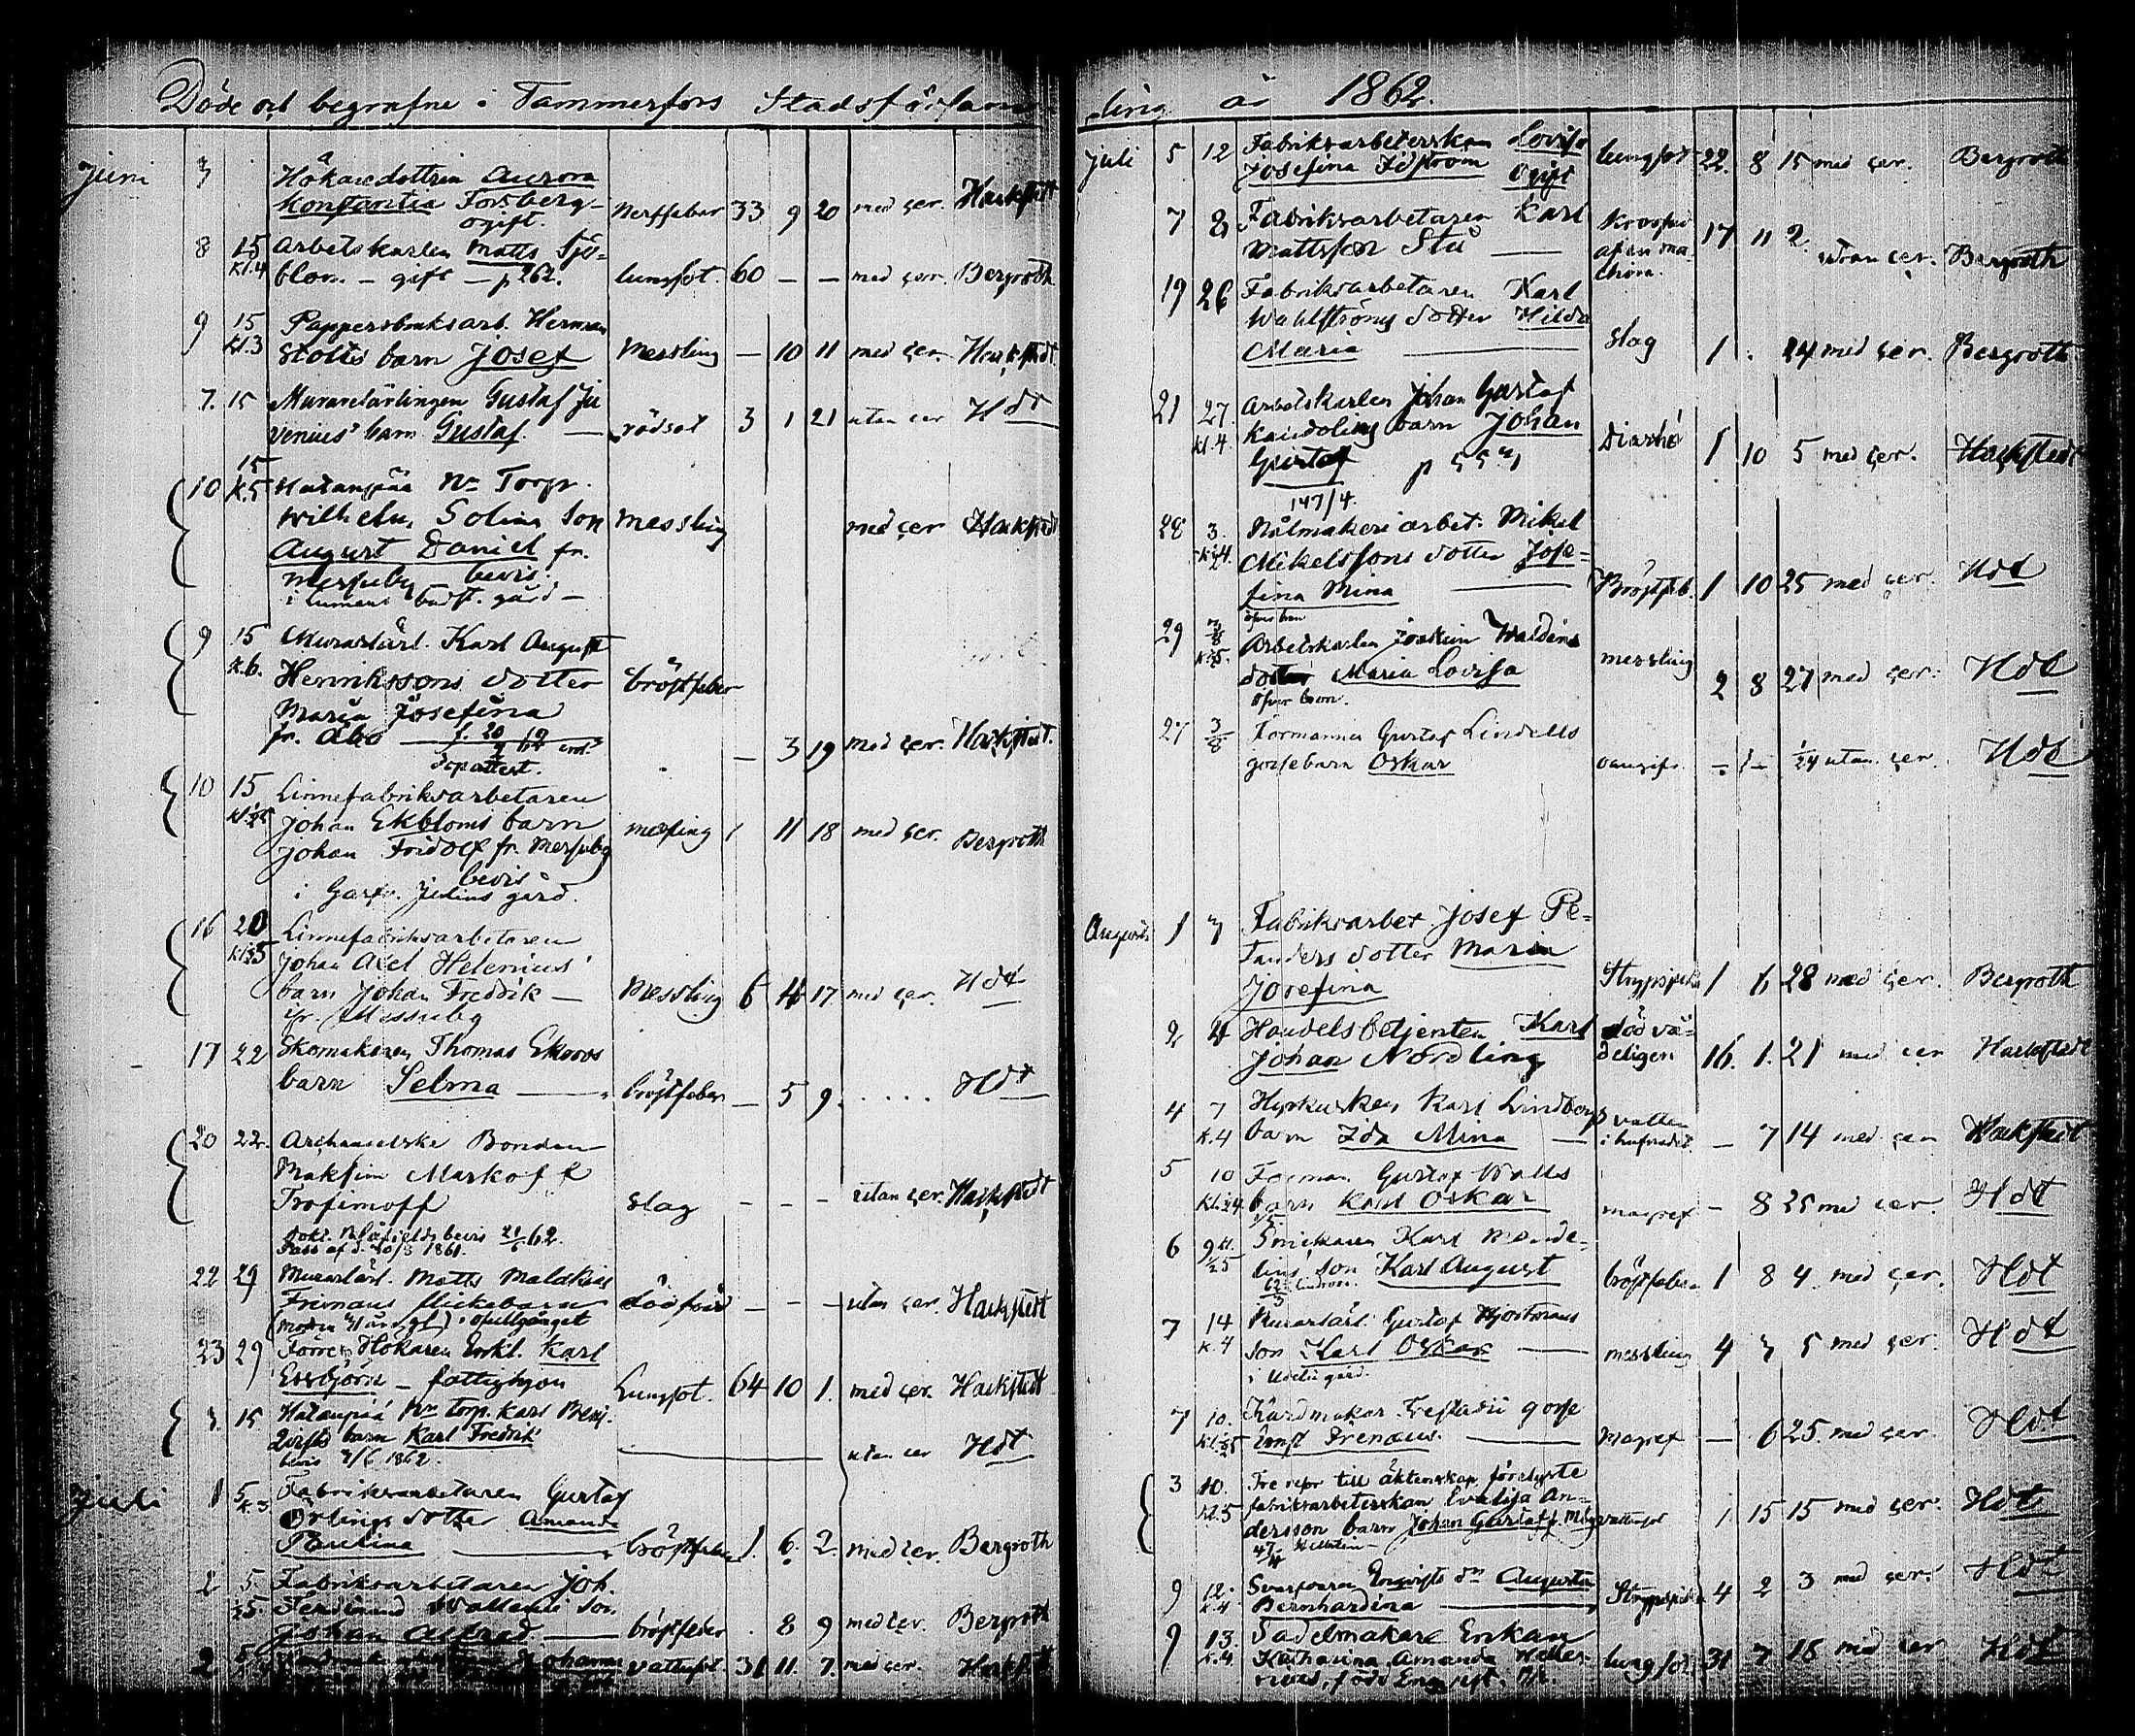 Döde och begrafne i Tammerfors Stadsförsam-
Juni 3 Hökaredottren Aurora
Konstantia Forsberg
ogift. Nerffeber 33 9 20 med cer. Hackstedt
8 15 Arbetskarlen Matts Sjö-
Kl. 4 blom - gift - p 262. lungsot. 60 - - med cer. Bergroth
9 15 Pappersbruksarb. Herman
Kl. 3 Stolts barn Josef Messling - 10 11 med cer. Hackstedt.
7. 15 Murarelärlingen Gustaf Ju
venius' barn Gustaf. rödsot 3 1 21 utan cer Hdt
15
10 K. 5 Hatanpää Nr Torp.
Wilhelm Solins Son Messling med cer Hackstedt
August Daniel fr.
Messuby bevis.
9 15 Murarlärl. Karl August
K. 6. Henrikssons dotter bröstfeber
Maria Josefina
fr. Åbo
- 3 19 med cer. Hackstedt.
10 15 Linnefabriksarbetaren
Johan Ekbloms barn messling 1 11 18 med cer. Bergroth
Johan Fridolf fr. Messuby
bevis
i Garfv. Julius gård.
16 20 Linnefabriksarbetaren
Johan Axel Helenius'
barn Johan Fredrik - Messling 6 4 17 med cer. Hdt
fr. Messuby
17 22 Skomakaren Thomas Ekroos
barn Selma bröstfeber - 5 9. . . . . . Hdt
20 22. Archangelske Bonden
Maksim Markoff
Trofimoff slag - - - utan cer. Hackstedt
bevis 21/6 62.
Pass af d. 20/3 1861.
22 29 Murarlärl. Matts
Frimans flickebarn dödfödd - - - utan cer. Hackstedt
23 29 Förre Hökaren Enkl. Karl
Essbjörn - fattighjon Lungsot. 64 10 1. med cer. Hackstedt
3. 15 Hatanpää Nr torp. Karl
barn Karl Fredrik utan cer Hdt
bevis 7/6 1862.
Juli 1 5 Fabriksarbetaren Gustaf
K. 3 Örlings dotter Amanda
Paulina bröstfeber 1. 6. 2. med cer. Bergroth
2 5. Fabriksarbetaren Joh.
Ferdinand son
Johan Alfred. bröstfeber . 8 9 med cer. Bergroth
2 Johanna vattusot 31 11. 7. med cer. Hackstedt
ling år 1862.
Juli 5 12 Fabriksarbeterskan Lovisa
Josefina Idström ogift lungsot 22. 8 15 med cer. Bergroth
7 8 Fabriksarbetaren Karl
Mattsson Stå Krossad
af en ma-
china. 17 11 2 utan cer. Bergroth
19 26 Fabriksarbetaren Karl
Wahlströms dotter Hilda
Maria slag 1 . 24 med cer. Bergroth
21 27. Arbetskarlen Johan Gustaf
Kl. 4. barn Johan
Gustaf p 554 Diarhé 1 10 5 med cer. Hackstedt
147/4.
28 3. Nålmakeriarbet. Mikel
Mikelssons dotter Jose-
fina Mina Bröstfeb. 1 10 25 med cer. Hdt
29 3/8 Arbetskarlen Joakim Waldéns
dotter Maria Lovisa messling 2 8 27 med cer. Hdt
27 3/8 Formannen Gustaf Lindells
gossebarn Oskar oangifv. - - 1/24 utan cer. Hdt
Augusti 1 3 Fabriksarbet Josef Pe-
tanders dotter Maria
Josefina Strypsjuka 1 6 28 med cer. Bergroth
2 4 Handelsbetjenten Karl död vå-
Johan Nordling deligen 16. 1. 21 med cer Hackstedt
4 7 Hyrkusken Karl Lindbergs vatten
K. 4 barn Ida Mina i hufvudet. - 7 14 med cer Hackstedt
5 10 Forman Gustaf Walls
barn Karl Oskar magref - 8 25 med cer. Hdt
6 9 Karl
son Karl August bröstfeber 1 8 4. med cer. Hdt
7 14 Murarlärl. Gustaf Hjortmans
K. 4 son Karl Oskar messling 4 3 5 med cer. Hdt
7 10. Kardmakar gosse
Ernst Irenaeus. Magref - 6 25. med cer. Hdt
3 10. Tre resor till äktenskap förelyste
Kl. 5 fabriksarbeterskan Evalisa An-
dersson barn Johan Gustaf f. vattusot 1 15 15 med cer. Hdt
9 12. Svarfvaren Engqvists dr Augusta
K. 4 Bernhardina Strypsjukan 4 2 3 med cer. Hdt
9 13. Sadelmakare Enkan
K. 4. Katharina Amanda
född Engqvist. lungsot 31 7 18 med cer Hdt